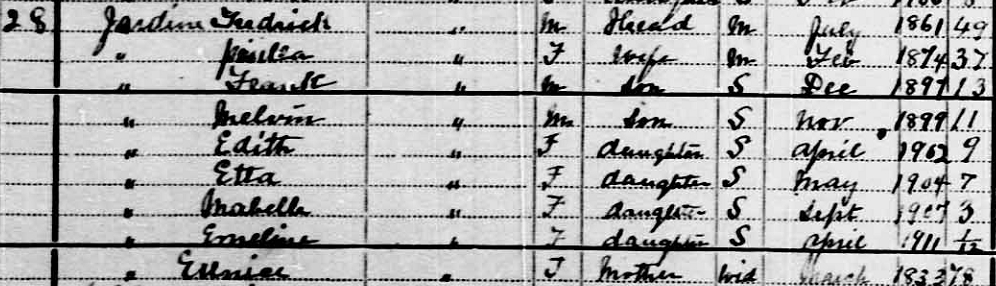 28 Jardine Fredrick " M Head M July 1861 49
" " F wife M Feb 1874 37
" Frank " M Son S Dec 1897 13
" Melvin " M Son S Nov. 1899 11
" Edith " F daughter S April 1902 9
" Etta " F daughter S May 1904 7
" Mabelle " F daughter S Sept 1907 3
" Emeline " F daughter S April 1911 1/12
" Eunice " F Mother Wid March 1833 78